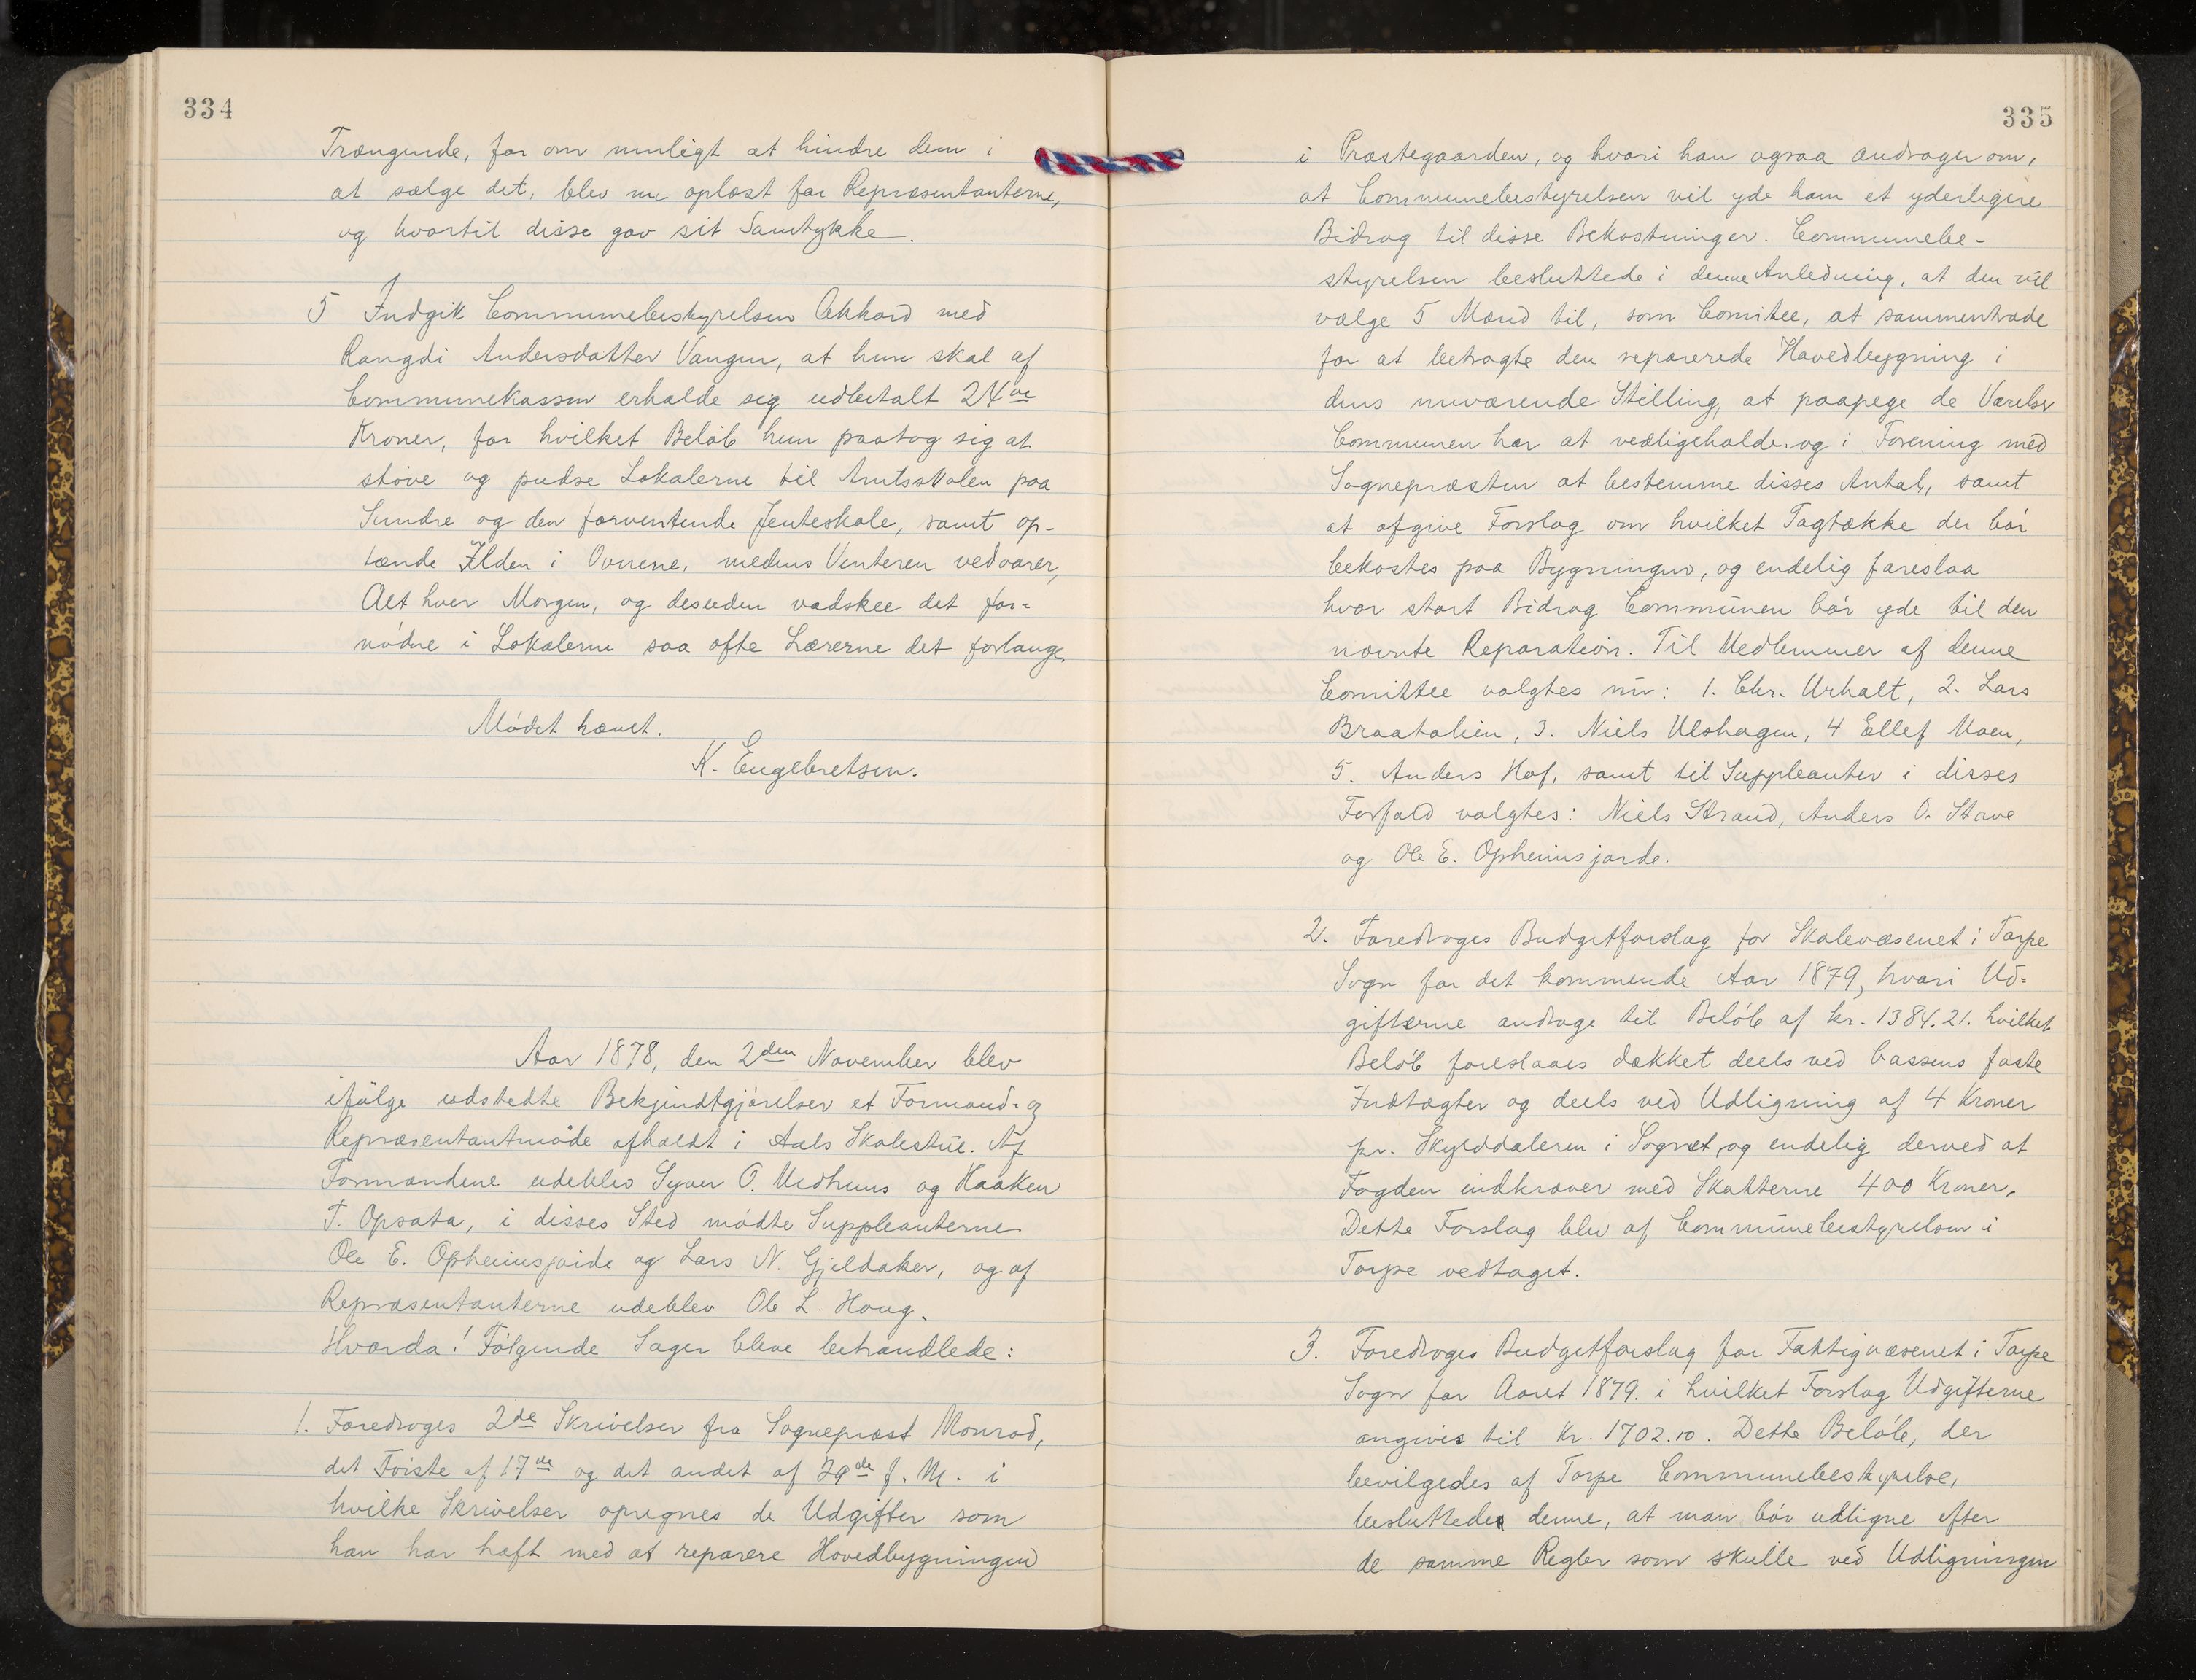 334
Trængende, for om muligt at hindre dem i
at sælge det, blev nu oplæst for Repræsentanterne,
og hvortil disse gav sit Samtykke.
5 Indgik Communebestyrelsen Akkord med
Rangdi Andersdatter Vangen, at hun skal af
Communekassen erholde sig udbetalt 24ve
Kroner, for hvilket Beløb hun paatog sig at
støve og pudse Lokalerne til Amtsskolen paa
Sundre og den forventende Jenteskole, samt op-
tænde Ilden i Ovnene, medens Venteren vedvarer,
Alt hver Morgen, og desuden vadskee det for=
nødne i Lokalerne saa ofte Lærerne det forlange.
Mødet hævet.
K. Engebretsen.
Aar 1878, den 2den November blev
ifølge udstedte Bekjendtgjørelser et Formand- og
Repræsentantmøde afholdt i Aals Skolestue. Af
Formændene udeblev Syver O. Medhuus og Haaken
T. Opsata, i disses Sted mødte Suppleanterne
Ole E. Opheimsjorde og Lars N. Gjeldaker, og af
Repræsentanterne udeblev Ole L. Houg.
Hvorda! Følgende Sager bleve behandlede:
1. Foredroges 2de Skrivelser fra Sognepræst Monrad,
det Første af 17de og det andet af 29de f. M. i
hvilke Skrivelser opregnes de Udgifter som
han har haft med at reparere Hovedbygningen
335
i Præstegaarden, og hvori han ogsaa andrager om,
at Communebestyrelsen vil yde ham et yderligere
Bidrag til disse Bekostninger. Communebe-
styrelsen besluttede i denne Anledning, at den vil
vælge 5 Mænd til, som Comitee, at sammentræde
for at betragte den reparerede Hovedbygning i
dens nuværende Stilling, at paapege de Værelser
Communen har at vedligeholde, og i Forening med
Sognepræsten at bestemme disses Antal, samt
at afgive Forslag om hvilket Tagtække der bør
bekostes paa Bygningen, og endelig foreslaa
hvor stort Bidrag Communen bør yde til den
nævnte Reparation. Til Medlemmer af denne
Comittee valgtes nu: 1. Chr. Urhalt, 2. Lars
Braatalien, 3. Niels Ulshagen, 4 Ellef Moen,
5. Anders Hof, samt til Suppleanter i disses
Forfald valgtes: Niels Strand, Anders O. Stave
og Ole E. Opheimsjorde.
2. Foredroges Budgetforslag for Skolevæsenet i Torpe
Sogn for det kommende Aar 1879, hvori Ud=
gifterne androge til Beløb af kr. 1384.21. hvilket
Beløb foreslaaes dækket deels ved Cassens faste
Indtægter og deels ved Udligning af 4 Kroner
pr. Skylddaleren i Sognet, og endelig derved at
Fogden indkræver med Skatterne 400 Kroner.
Dette Forslag blev af Communebestyrelsen i
Torpe vedtaget.
3. Foredroges Budgetforslag for Fattigvæsenet i Torpe
Sogn for Aaret 1879. i hvilket Forslag Udgifterne
angives til Kr. 1702.10. Dette Beløb, der
bevilgedes af Torpe Communebestyrelse,
besluttedes denne, at man bør udligne efter
de samme Regler som skulle ved Udligningen